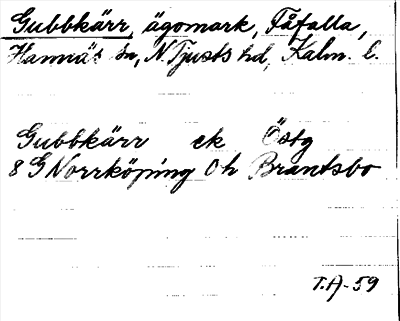 Gubbkärr, ägomark, Fåfalla,
Hannäs sn, N. Tjusts hd, Kalm. l.
Gubbkärr ek Östg
8 G Norrköping 0h Brantsbo
T.A-59